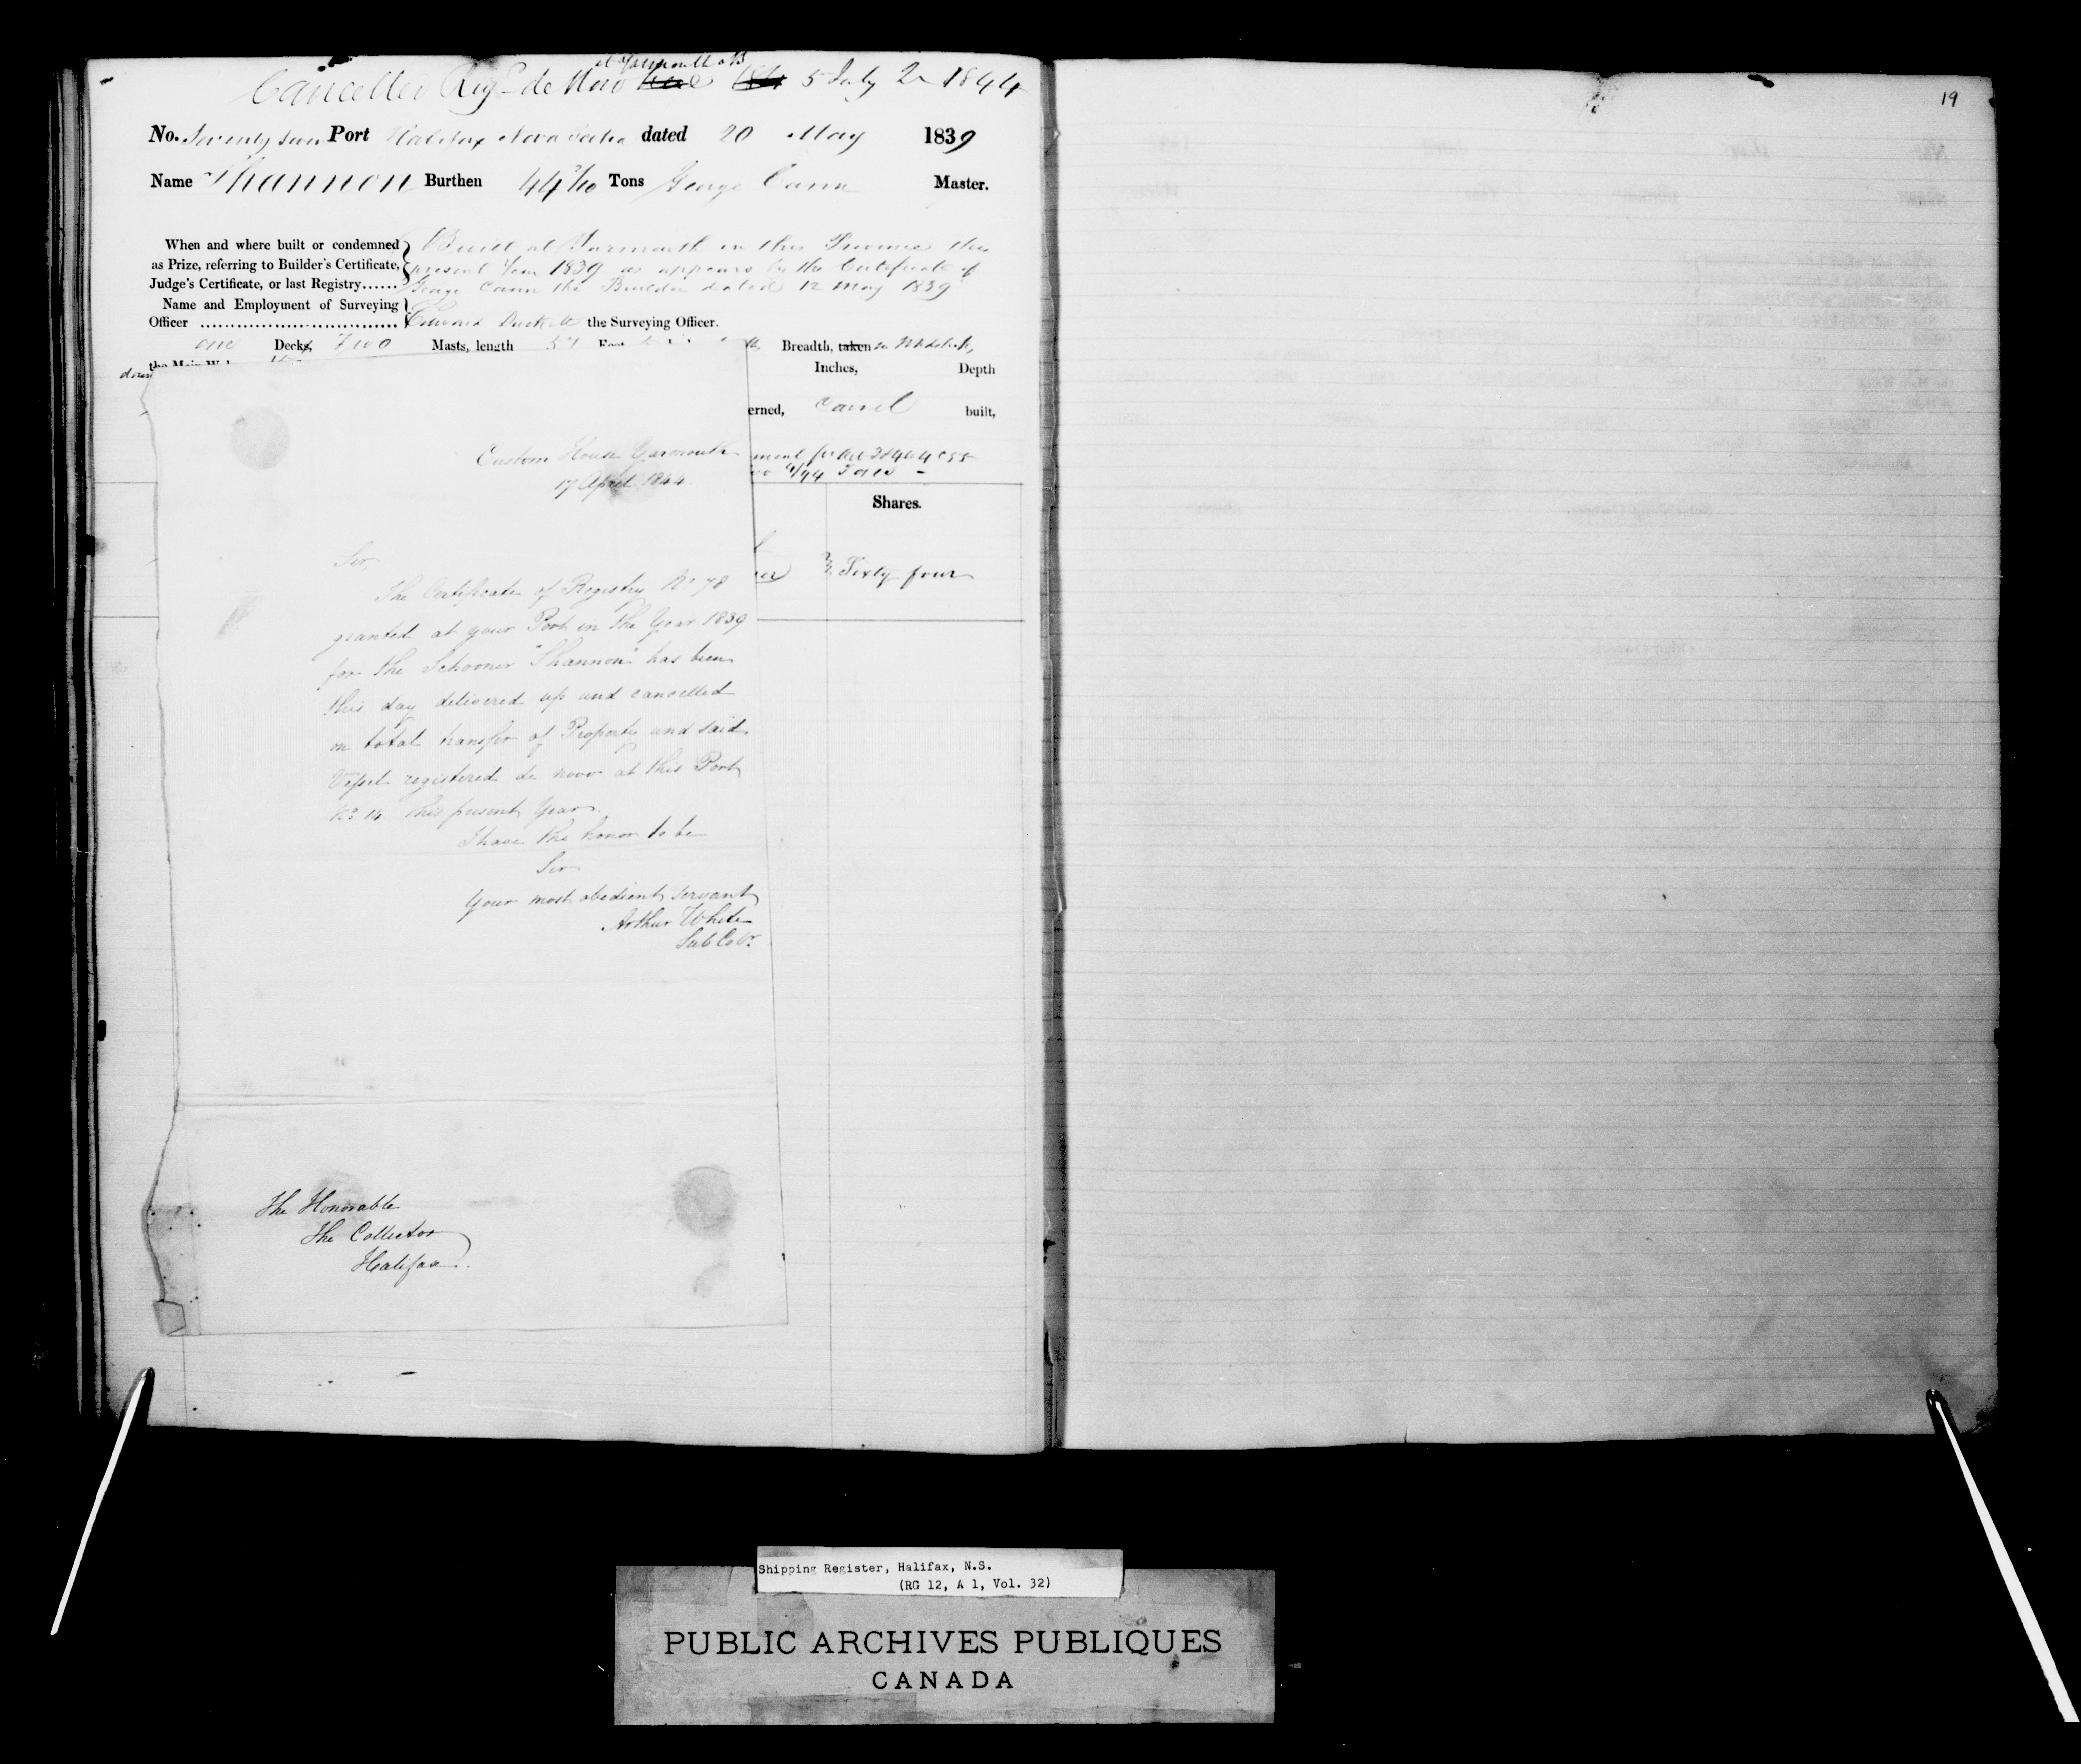 at Yarmouth NS
Cancelled Reg de Novo here 5 July 1844
19
No. Seventy Port Halifax Nova Scotia dated 20 May 1839
Name Shannon Burthen 44 Tons George Cann Master.
When and where built or condemned Built at Yarmouth in this Province the
as Prize, referring to Builder's Certificate, present Year 1839 as appears by the Certificate of
Judge's Certificate, or last Registry...... George Cann the Builder dated 12 May 1839
Name and Employment of Surveying
Officer Edward the Surveying Officer.
one Decks, Two Masts, length Breadth, taken in Midships,
Inches, Depth
erned, Carvel built,
Shares.
Sixty four
Custom House Yarmouth
17 April 1844
Sir,
The Certificate of Registry No 78
granted at your Port in the Year 1839
for the Schooner "Shannon" has been
this day delivered up and cancelled
on total transfer of Property and said
Vessel registered de novo at this Port
No 14 this present Year.
I have the honor to be
Sir
Your most obedient servant
Arthur White
Sub Collr.
The Honorable
The Collector
Halifax.
Shipping Register, Halifax, N.S.
(RG 12, A 1, Vol. 32)
PUBLIC ARCHIVES PUBLIQUES
CANADA